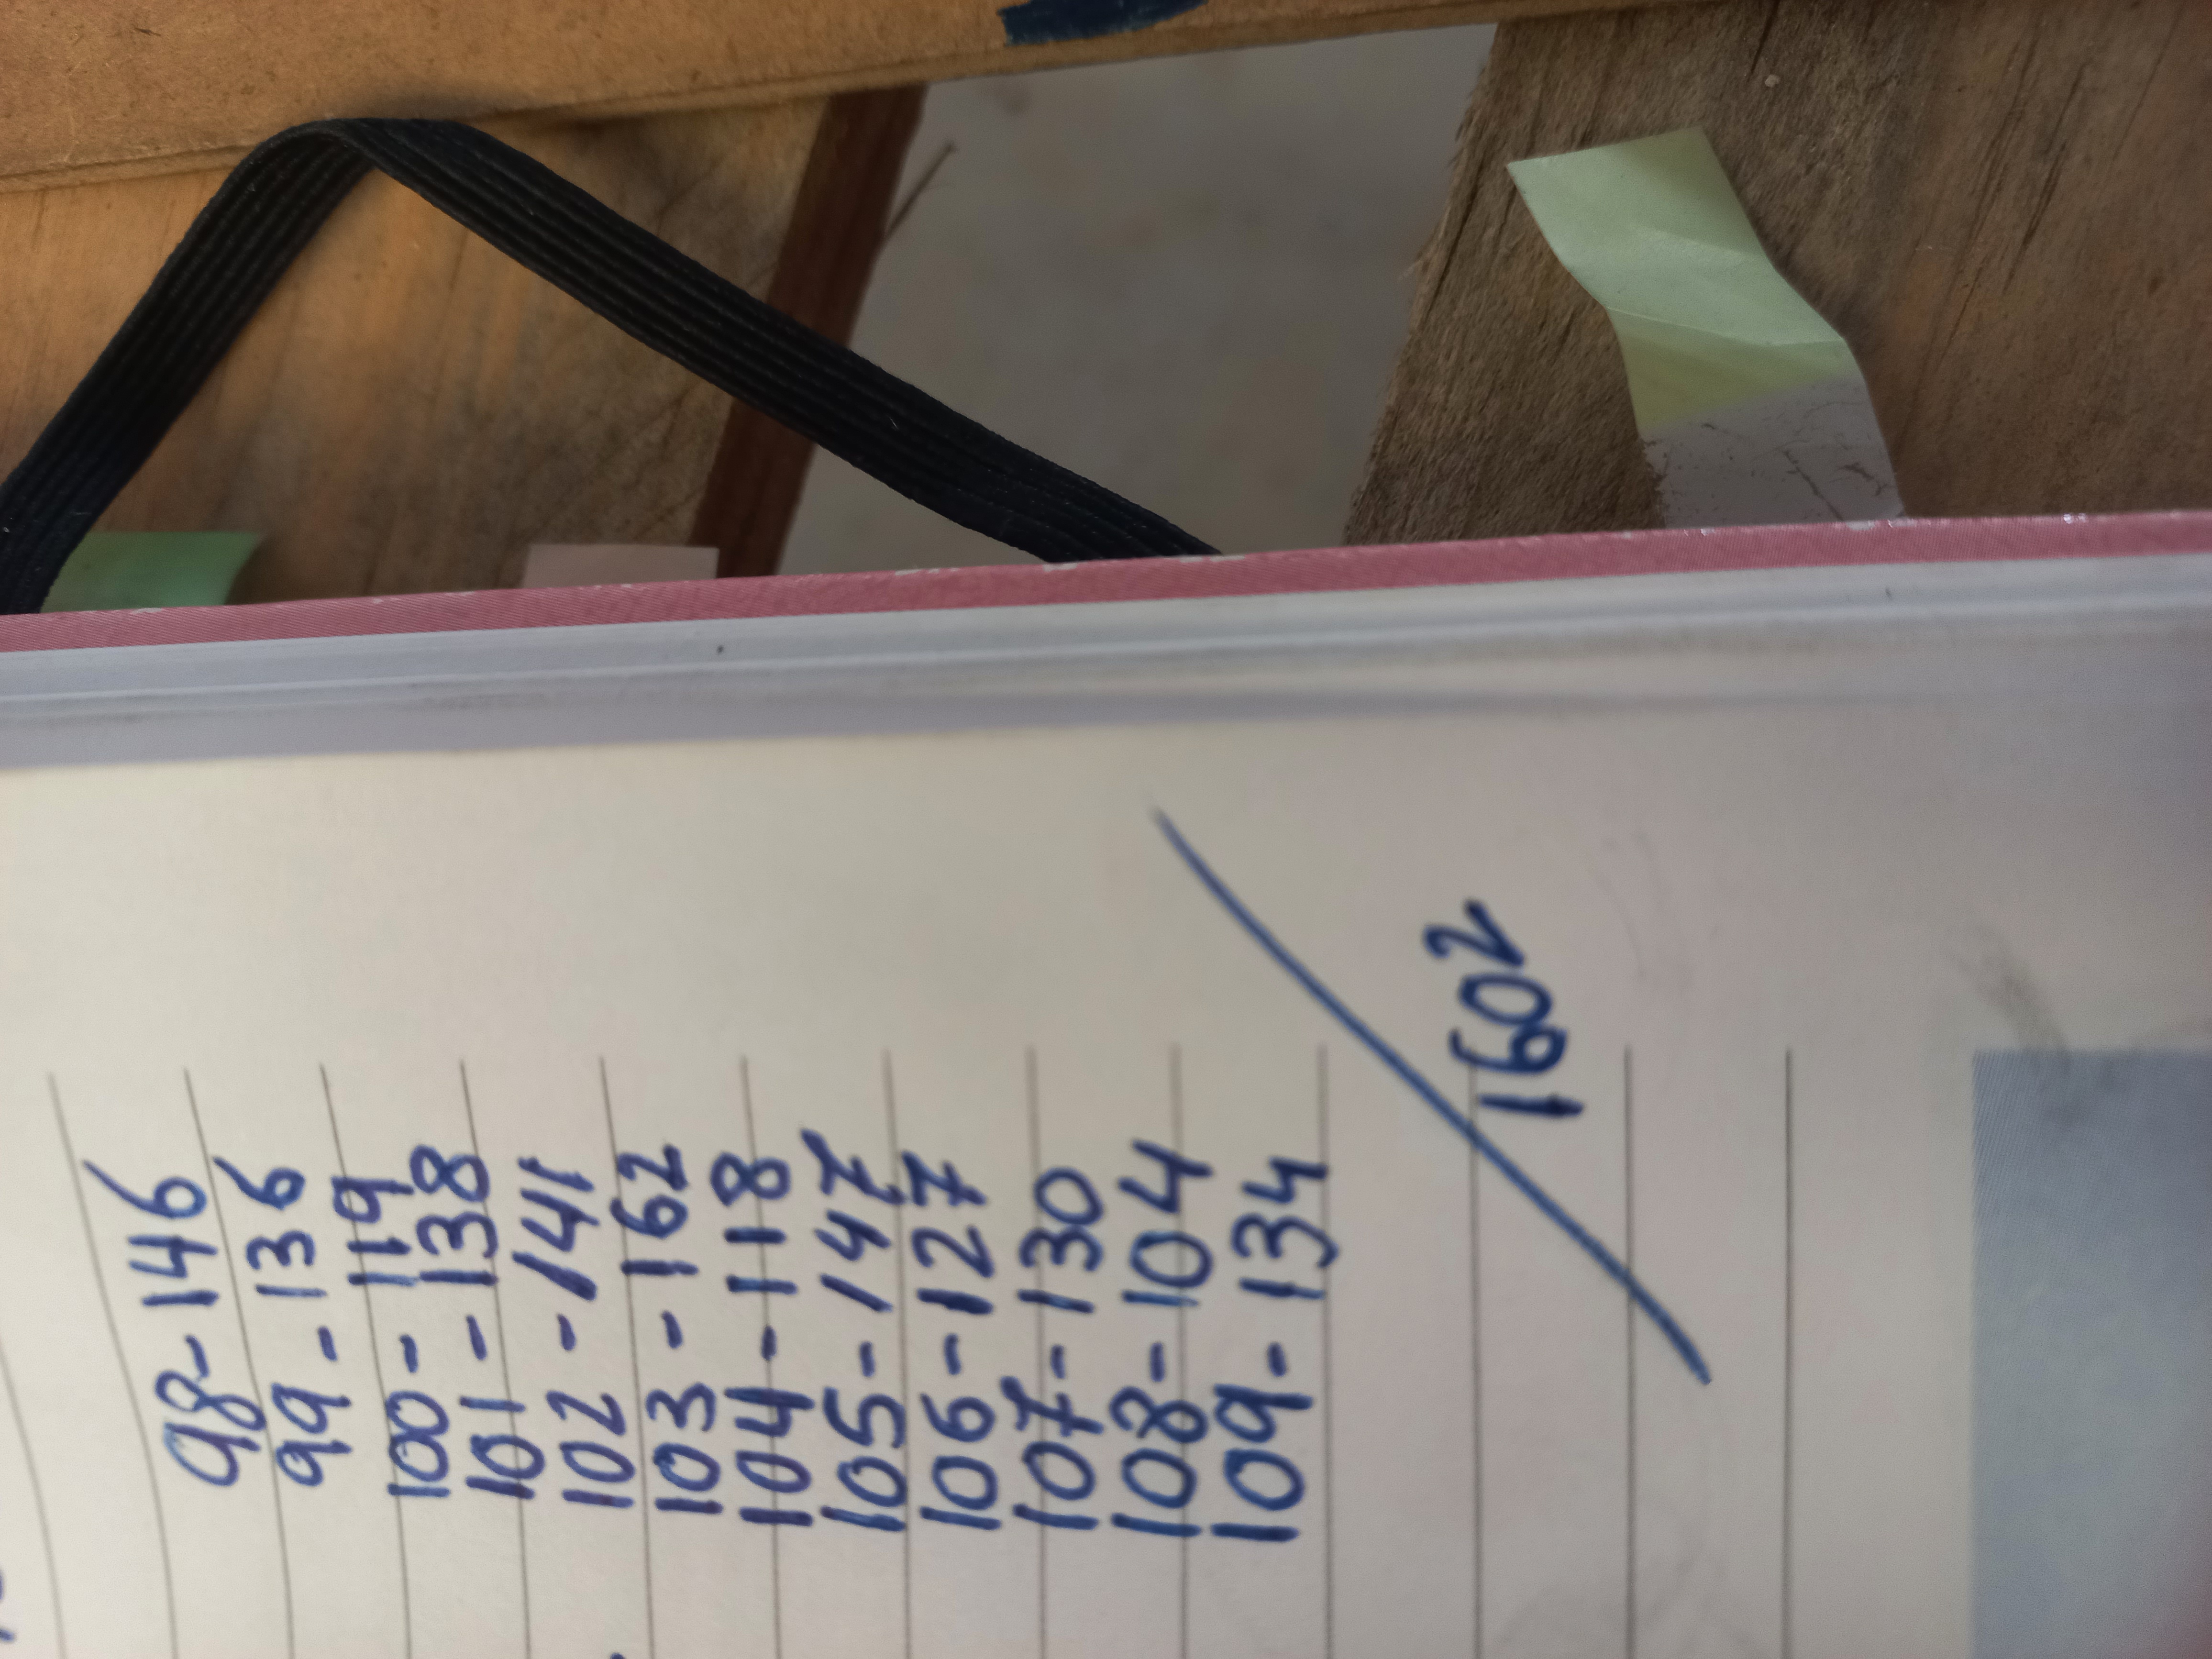 98-146
99-136
100-119
101-138
102-141
103-162
104-118
105-147
106-127
107-130
108-104
109-134
1602